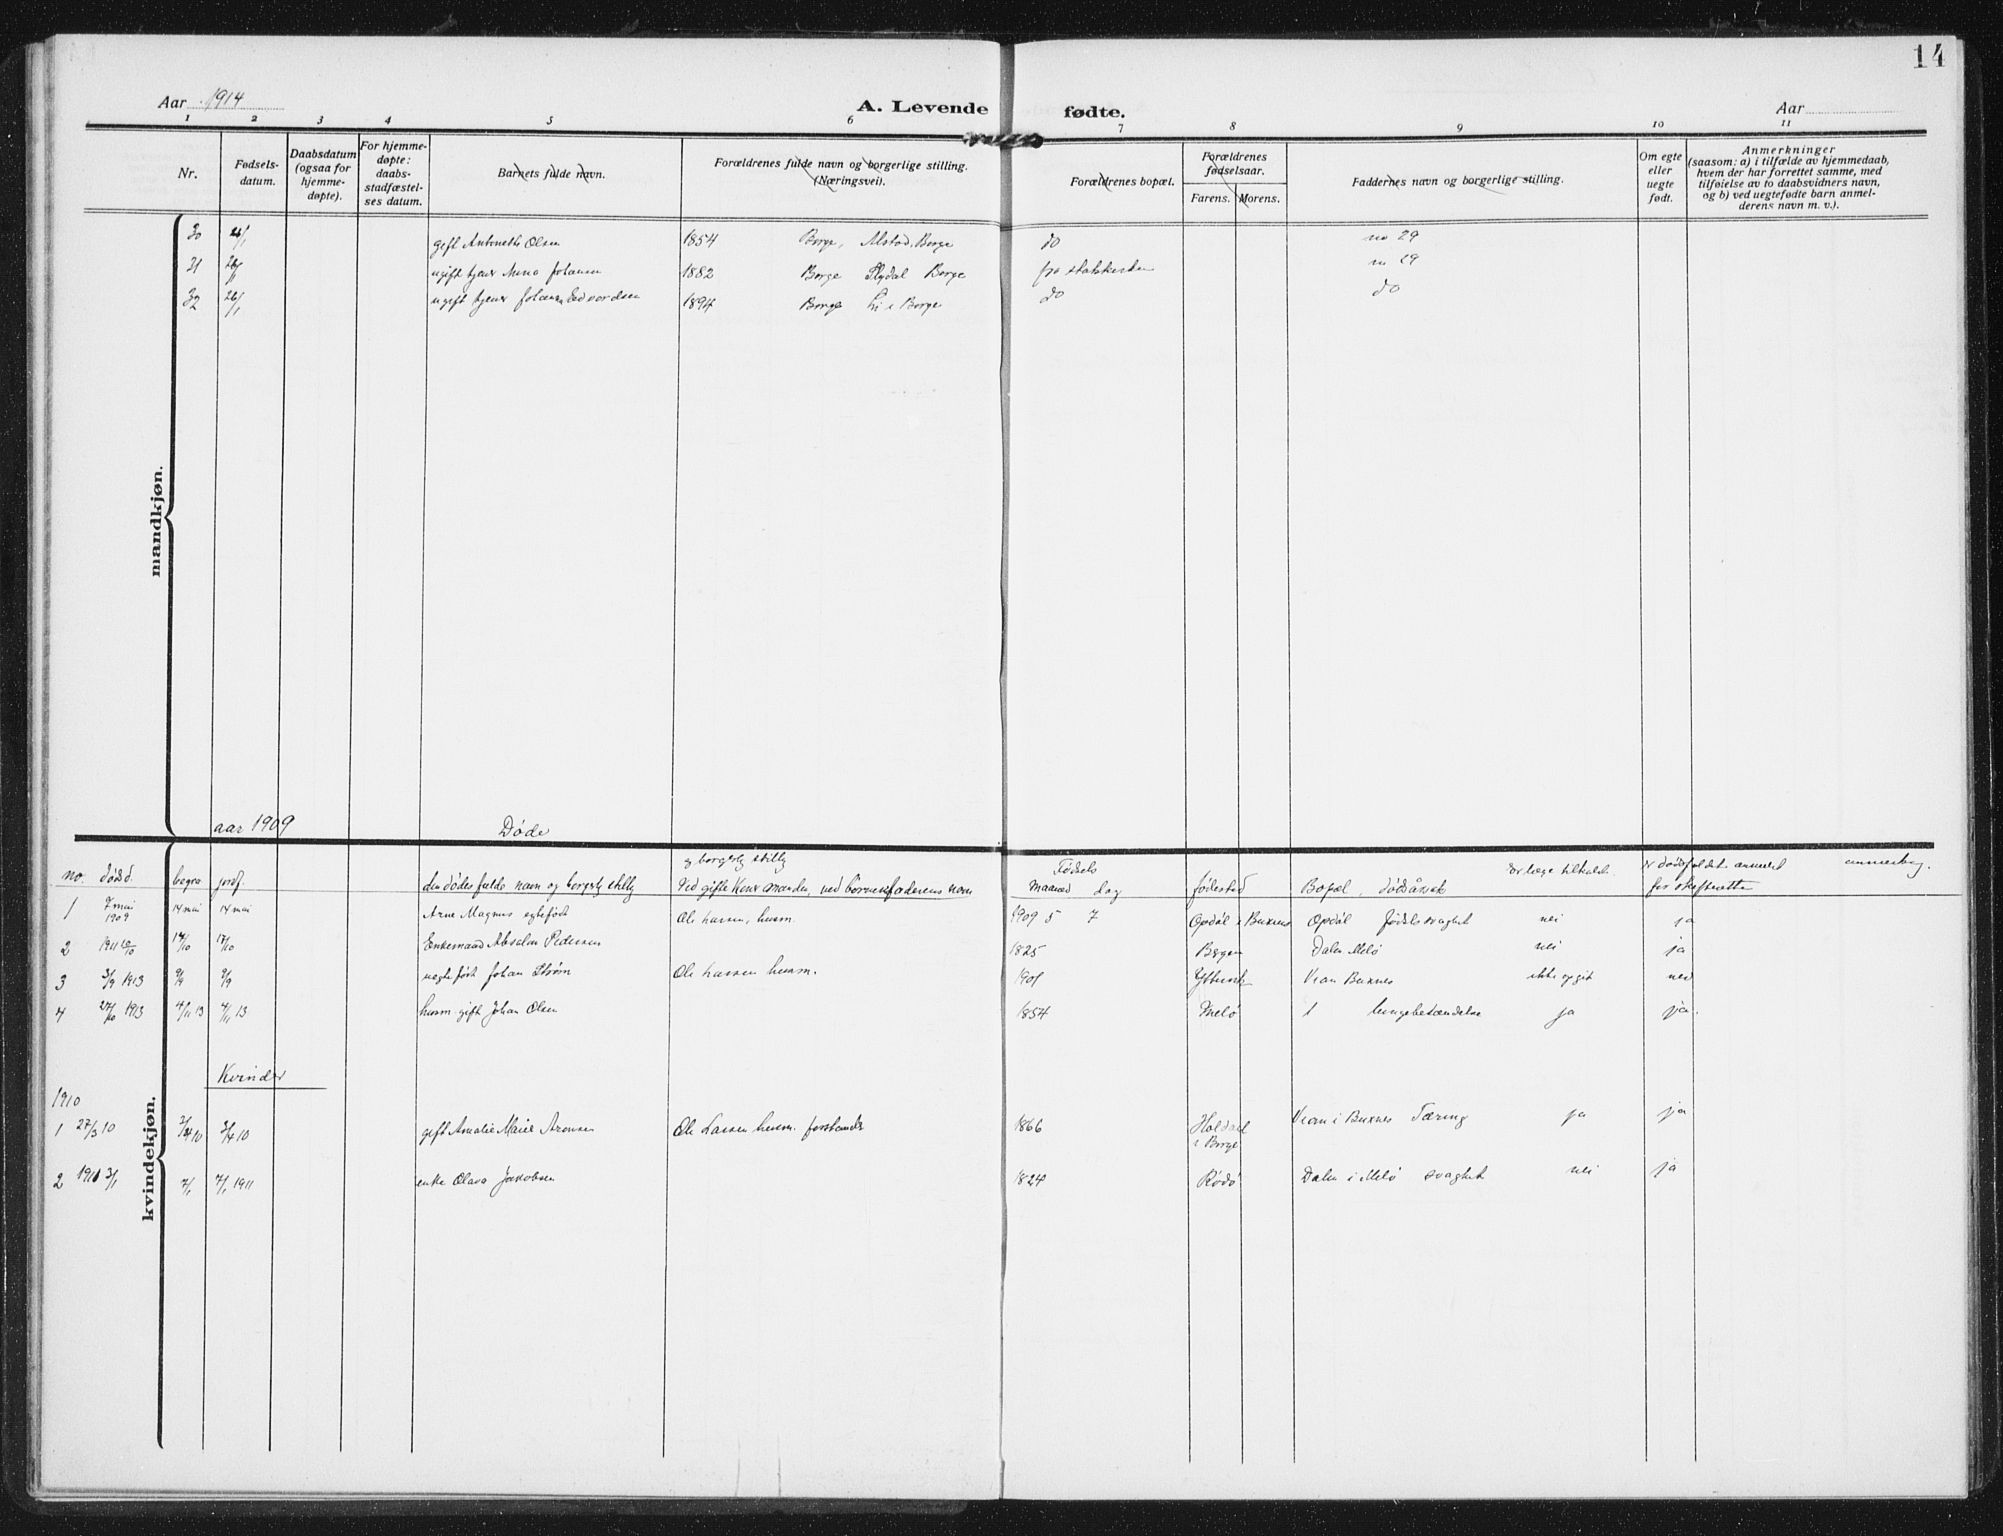 14
Aar 1914 A. Levende fødte. Aar
1 2 3 4 5 6 7 8 9 10 11
Nr.
Fødsels-
datum.
Daabsdatum
(ogsaa for
hjemme-
døpte).
For hjemme-
døpte:
daabs-
stadfæstel-
ses datum.
Barnets fulde navn.
Forældrenes fulde navn og borgerlige stilling.
(Næringsvei).
Forældrenes bopæl.
Forældrenes
fødselsaar.
Farens. Morens.
Faddernes navn og borgerlige stilling.
Om egte
eller
uegte
født.
Anmerkninger
(saasom: a) i tilfælde av hjemmedaab,
hvem der har forrettet samme, med
tilføielse av to daabsvidners navn,
og b) ved uegtefødte barn anmel-
derens navn m. v.).
mandkjøn.
30 gift Antonette Olsen 1854 Borge, Alstad, Borge do no 29
31 26/1 ugift tjener Anna Johansen 1882 Borge Flydal Borge fra statskirken no 29
32 26/1 ugift tjener Johanna Edvardsen 1894 Borge Li i Borge do do
aar 1909 Døde
kvindekjøn.
og borgerlig stillg
Fødsels
no. dødsd. begra jordf. den dødes fulde navn og borgerlg stillg Ved gifte Koner manden, ved børnene faderens navn maaned dag fødested Bopæl, dødsårsak er læge tilkaldt er dødsfaldet anmeldt anmerkng.
for skifteretten
1 7 mai 1909 14 mai 14 mai Arne Magnus egtefødt Ole Larsen, husm. 1909 5 7 Opdøl i Buxnes Opdøl fødselssvaghet nei ja
2 1911 10/10 17/10 17/10 Enkemand Absalon Pedersen 1825 Bergen Dalen Melø nei ja
3 3/9 1913 9/9 9/9 uegte født Johan Strøm Ole Larsen husm. 1901 Vian Buxnes ikke opgit nei
4 27/10 1913 4/11 13 4/11 13 husm. gift Johan Olsen 1854 Melø lungebetændelse ja ja.
Kvinder
1910
1 27/3 10 3/4 10 3/4 10 gift Amalie Marie Aronsen Ole Larsen husm. forstander 1866 Holdal i Borge Vian i Buxnes Tæring ja ja
2 1911 3/1 7/1 7/1 1911 enke Olava Jakobsen 1824 Rødø Dalen i Melø svaghet nei ja